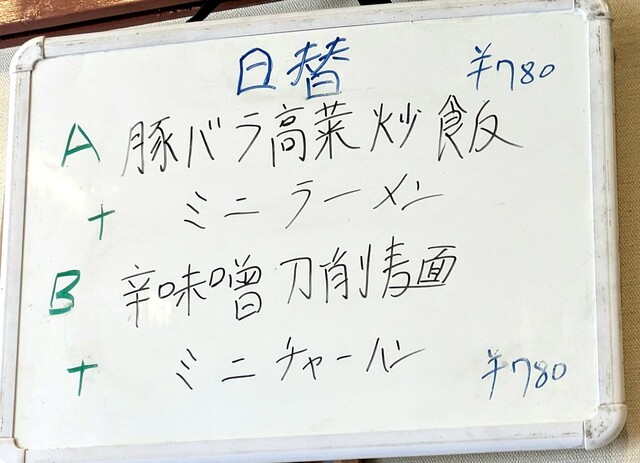 日替 ¥780
A 豚バラ高菜炒飯
+ ミニラーメン
B 辛味噌刀削麺
+ ミニチャーハン ¥780